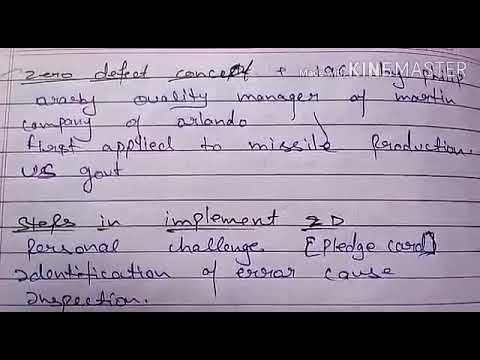 zero defect concept + 1961 by philip
Made with KINEMASTER
arasby quality manager of martin
company of arlando
first applied to missile production.
us govt
Steps in implement ZD
Personal challenge. [Pledge card]
Identification of error cause
Inspection.